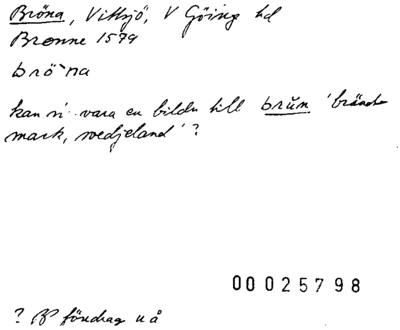 Bröna, Vittsjö, V Göinge hd
Brønne 1579
brö`na
kan ngt vara en bildn till brün 'brända
mark, svedjeland'?
00025798
? föredrag u å